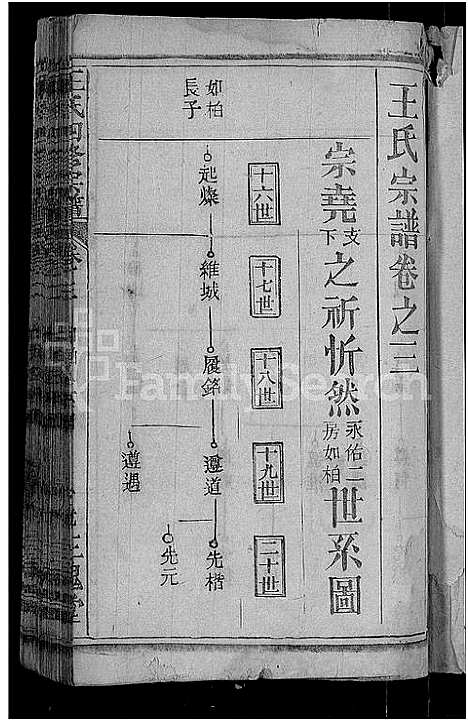 王氏宗譜卷之三
宗堯支下之祈忻然永佑二房如柏世系圖
十六世
十七世
十八世
十九世
二十世
如柏
長子
起燦
維城
履銘
邅道
先楷
先元
遵遇
FamilySearch